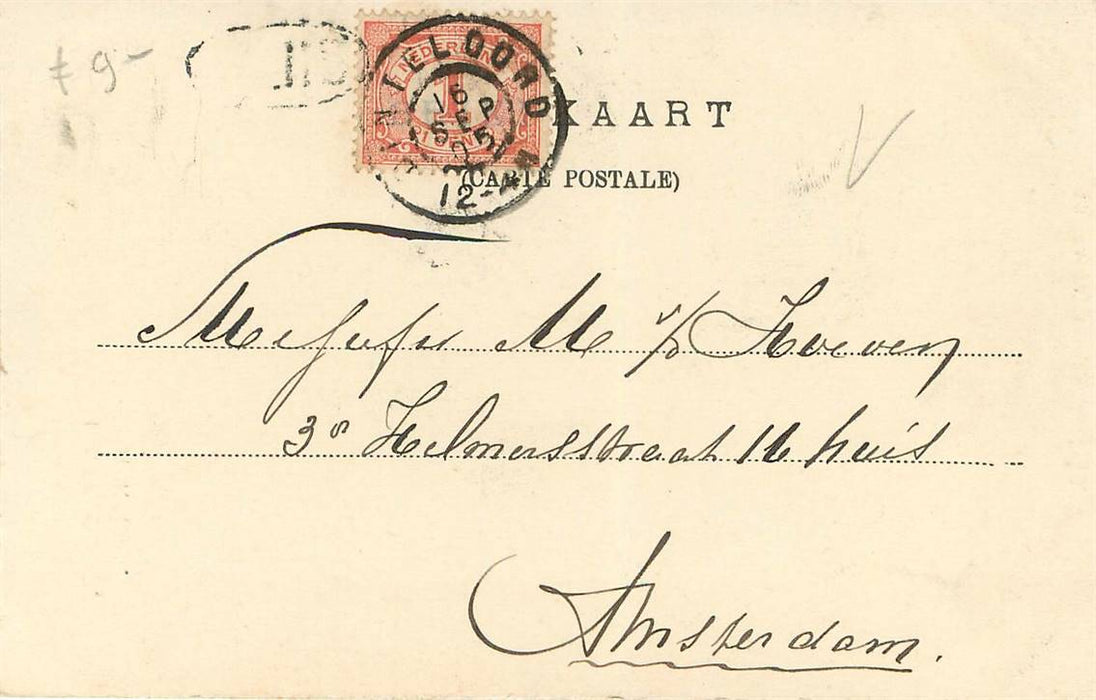 f 9-
NEDERLAND
1
CENT
SINTELDORD
16
SEP
05
12-4N
KAART
(CARTE POSTALE)
Mejufr M v/d Hoeven
3e Helmersstraat 116 huis
Amsterdam.